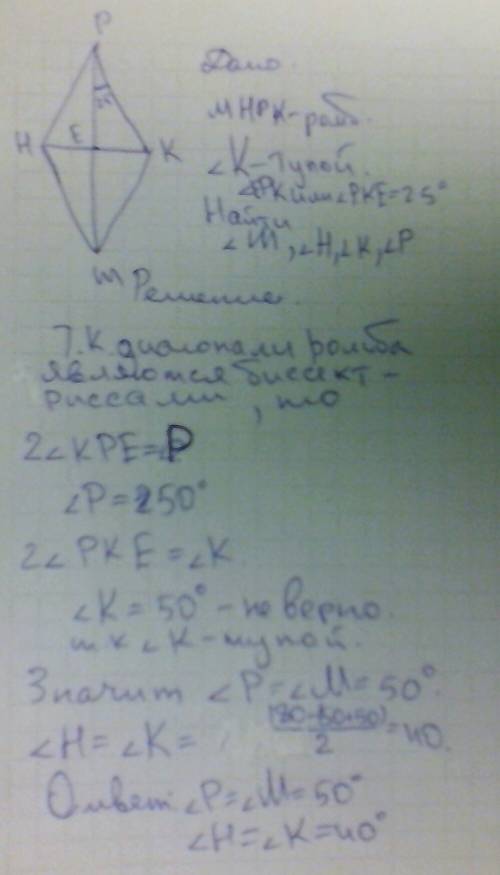 P
25
H E K
M
Дано.
МНРК-ромб.
∠К-тупой.
∠EPK или ∠PKE=25°
Найти
∠M, ∠H, ∠K, ∠P
Решение.
Т.К. диагонали ромба
являются биссект-
риссами, то
2∠KPE=∠P
∠P=250°
2∠PKE=∠K.
∠K=50°-неверно.
т к ∠K-тупой.
Значит ∠P=∠M=50°.
∠H=∠K= (180-(50+50))/2=40.
Ответ: ∠P=∠M=50°
∠H=∠K=40°